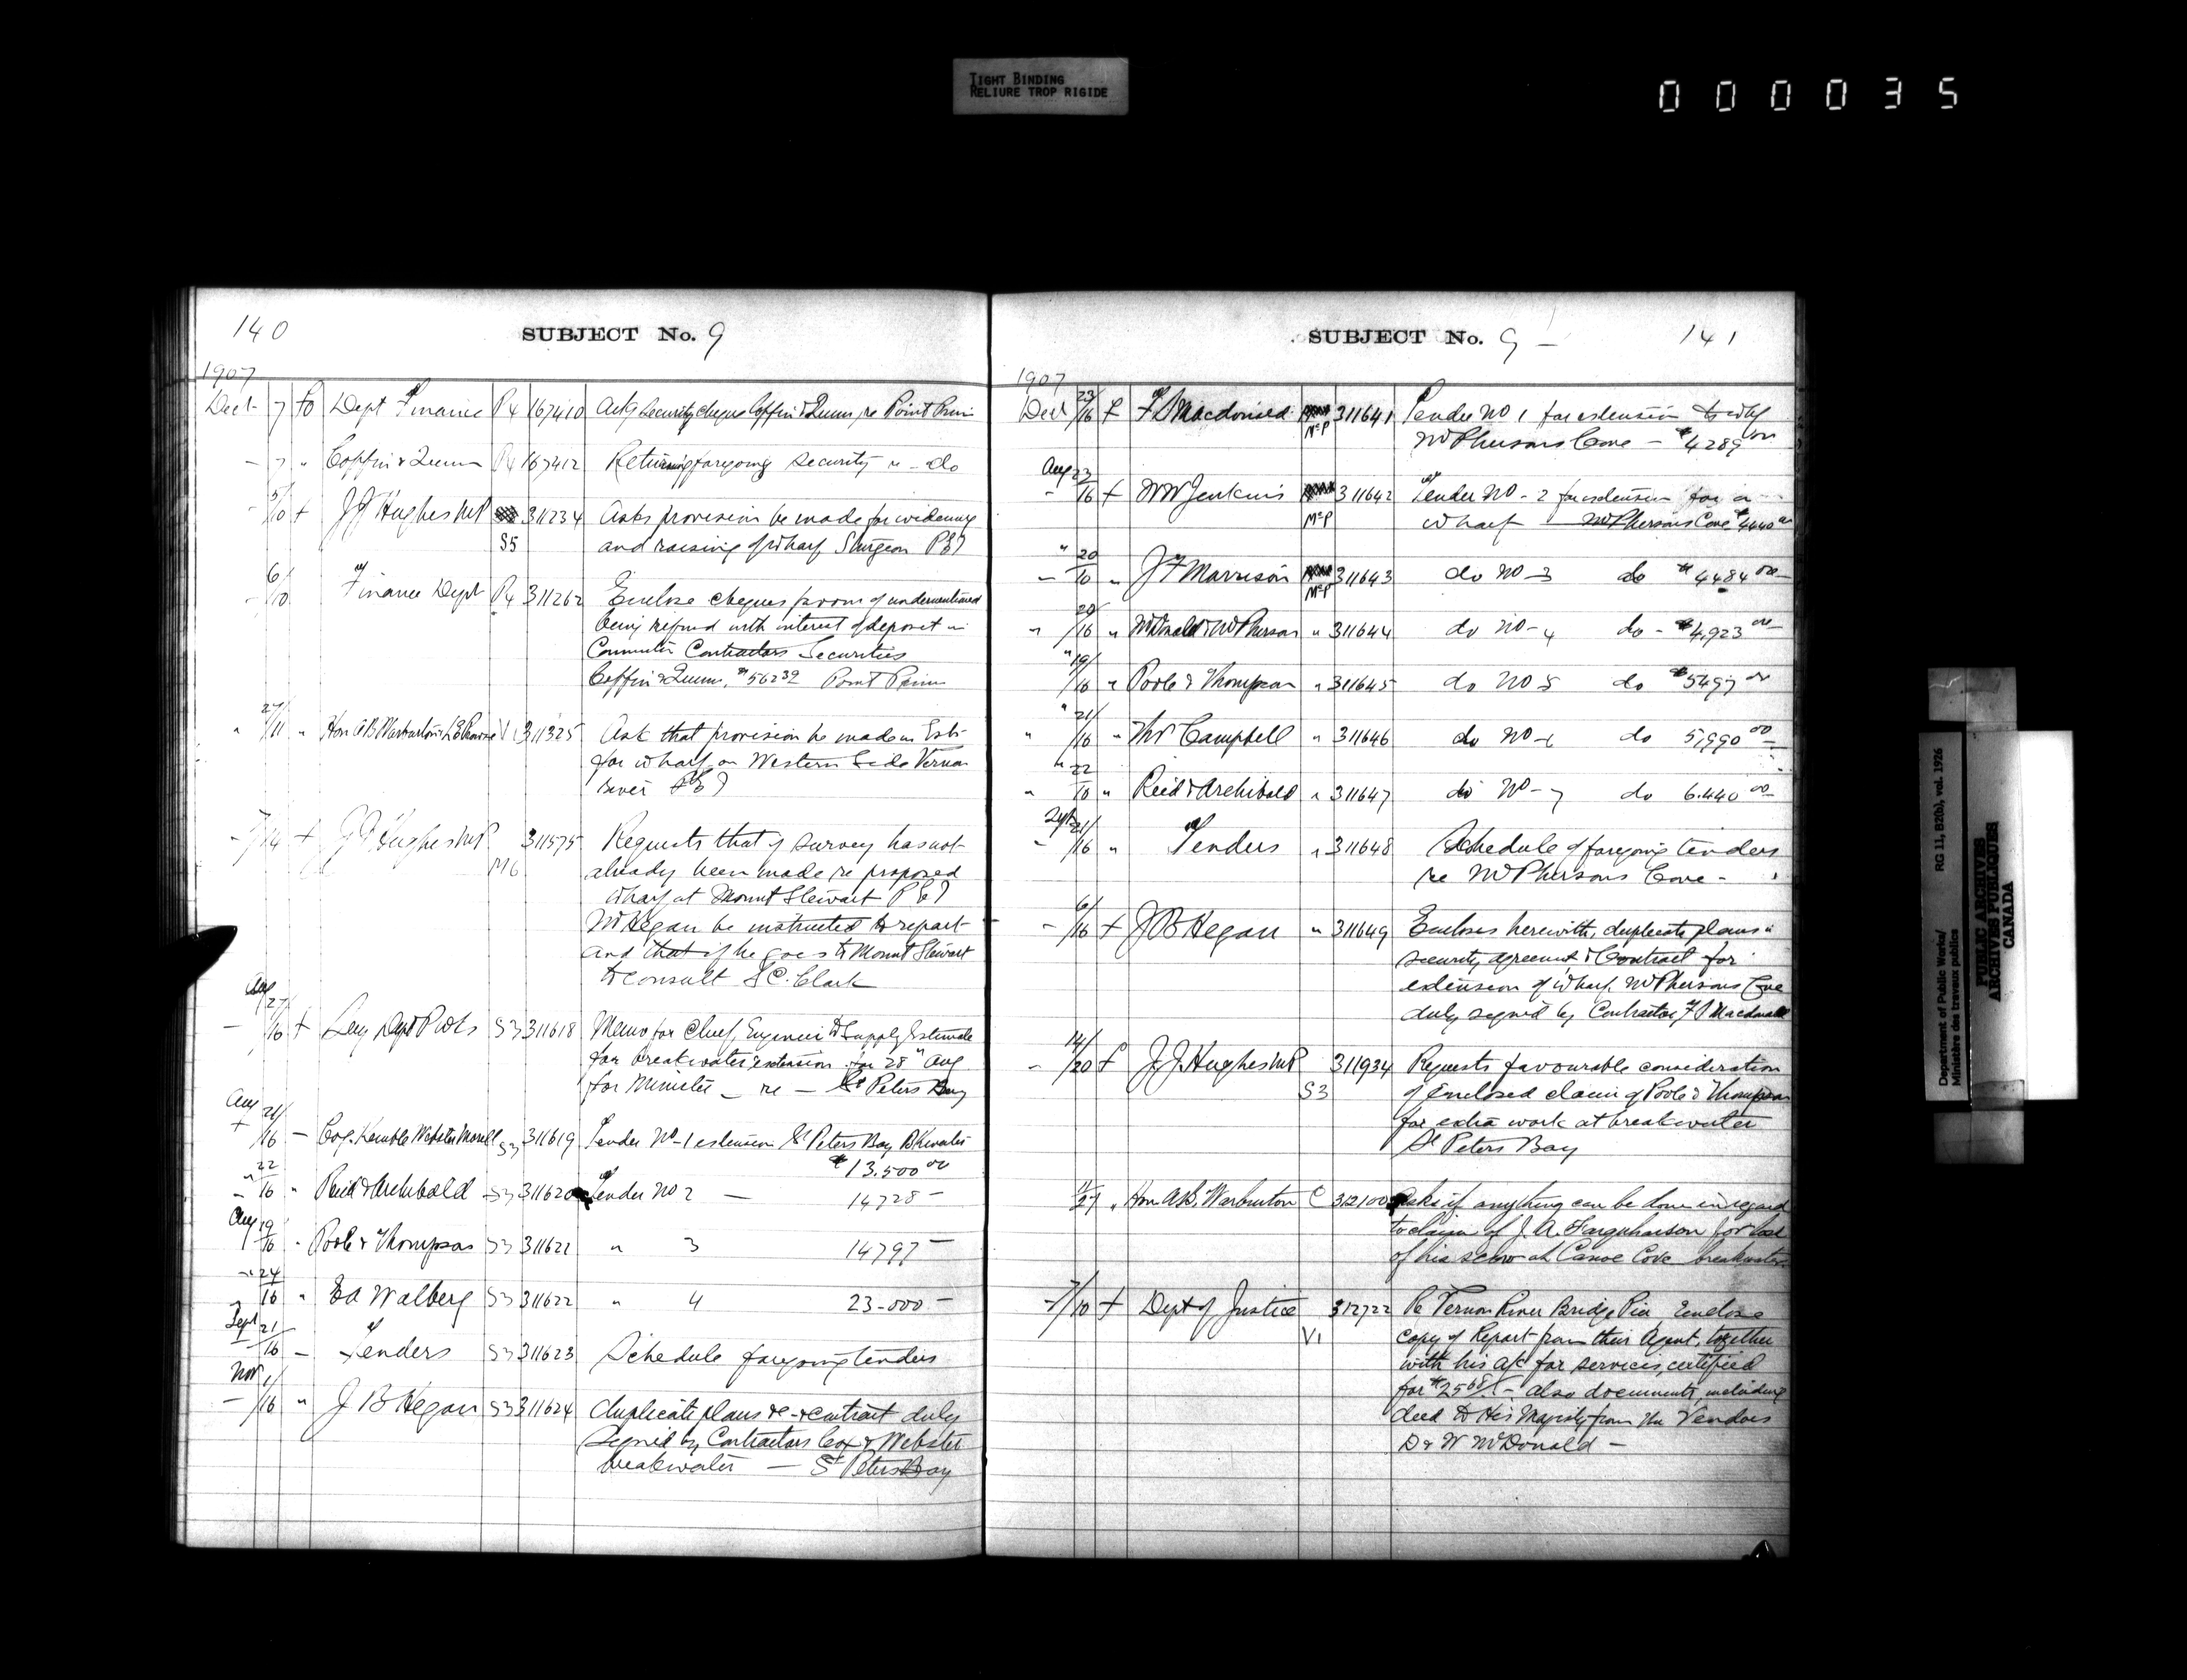 TIGHT BINDING
RELIURE TROP RIGIDE
000035
140
SUBJECT No. 9
1907
Dec 7 to Dept Finance P4 167410 Ack'g Security cheque Coffin & Quinn re Point Prim
- 7 " Coffin & Quinn P4 167412 Returning foregoing security re - do
- 5/10 f J J Hughes MP 311234 Asks provision be made for widening
S5 and raising of wharf Sturgeon PEI
- 6/10 of Finance Dept P4 311262 Enclose cheques favour of undermentioned
being refund with interest of deposit in
Connection Contractors Securities
Coffin & Quinn, $562 32 Point Prim
" 27/11 " Hon A B Warburton & L E Prowse V1 311325 Ask that provision be made in Esti-
for wharf on Western Side Vernon
River PEI
- 7/14 f J J Hughes MP 311575 Requests that if survey has not
M6 already been made re proposed
wharf at Mount Stewart PEI
Mr Hegan be instructed to report
and that if he goes to Mount Stewart
to consult S C. Clark
Aug
- 27/16 f Secy Dept P Wks S3 311618 Memo for Chief Engineer to Supply Estimate
for breakwater extension for 28" Aug
for Minister - re - St Peters Bay
Aug
+ 21/16 - Cox, Kemble Webster Morell S3 311619 Tender No-1 extension St Peters Bay Bkwater
$13.500 00
" 22
- 16 " Reid & Archibald S3 311620 of Tender No 2 - 14728 -
Aug 19
16 " Poole & Thompson S3 311621 " 3 14797 -
" 24
" 16 " Ed Walberg S3 311622 " 4 23-000 -
Sept 21
16 - of Tenders S3 311623 Schedule foregoing tenders
Nov 1
- /16 " J B Hegan S3 311624 duplicate plans &c - & contract duly
Signed by Contractors Cox & Webster
breakwater - St Peters Bay
SUBJECT No. 9 -
141
1907
Dec 23/16 f of F D Macdonald 311641 Tender No 1 for extension to whf
McP McPhersons Cove - $4289 00
Aug 23
- 16 f W W Jenkins 311642 of Tender No - 2 for extension for a
McP wharf - McPhersons Cove $4440 00
" 20
- 16 " J F Morrison 311643 do No - 3 do $4484 00
McP
" 20/16 " McDonald & McPherson " 311644 do No - 4 do - $4,923 00
" 19/16 " Poole & Thompson " 311645 do No 5 do $5497 00
" 21/16 " Thos Campbell " 311646 do No - 6 do 5,990 00
" 22
" 16 " Reid & Archibald " 311647 do No - 7 do 6.440 00
Sept 21
- /16 " of Tenders " 311648 Schedule of foregoing tenders
re McPhersons Cove -
- 6/16 f J B Hegan " 311649 Encloses herewith, duplicate plans
security agreement & Contract for
extension of wharf McPhersons Cove
duly signed by Contractor F D Macdonald
- 14/20 f J. J. Hughes MP 311934 Requests favourable consideration
S3 of enclosed claim of Poole & Thompson
for extra work at breakwater
St Peters Bay
27 " Hon A. B. Warburton C 312100 Asks if anything can be done in regard
to claim of J. A. Farquharson for loss
of his scow at Canoe Cove breakwater
- 7/10 f Dept of Justice 312722 Re Vernon River Bridge Pier Enclose
V1 copy of Report from their Agent, together
with his a/c for services, certified
for $25 65 - also documents, including
deed to His Majesty from the Vendors
D & W McDonald -
Department of Public Works/
Ministère des travaux publics
RG 11, B2(b), vol. 1926
PUBLIC ARCHIVES
ARCHIVES PUBLIQUES
CANADA